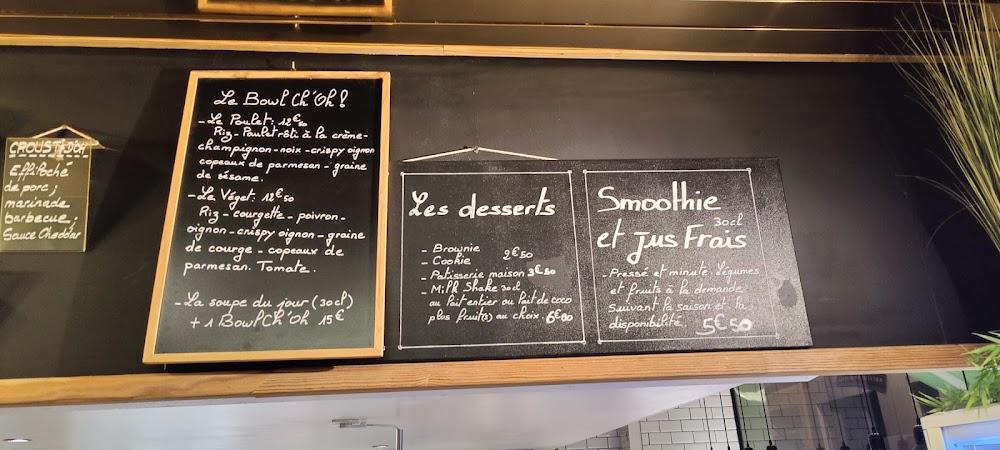 CROUSTI D'OH
Effiloché
de porc ;
marinade
barbecue ;
Sauce Cheddar
Le Bowl Ch'Oh !
- Le Poulet : 12€50
Riz - Poulet rôti à la crème -
champignon - noix - crispy oignon
copeaux de parmesan - graine
de sésame.
- Le Véget : 12€50
Riz - courgette - poivron -
oignon - crispy oignon - graine
de courge - copeaux de
parmesan. Tomate.
- La soupe du jour (30cl)
+ 1 Bowl Ch'Oh 15€
Les desserts
- Brownie
- Cookie 2€50
- Patisserie maison 3€50
- Milk Shake 30cl
au lait entier ou lait de coco
plus fruit(s) au choix. 6€00
Smoothie
30cl
et jus Frais
- Pressé et minute. Légumes
et fruits à la demande
suivant la saison et la
disponibilité. 5€50